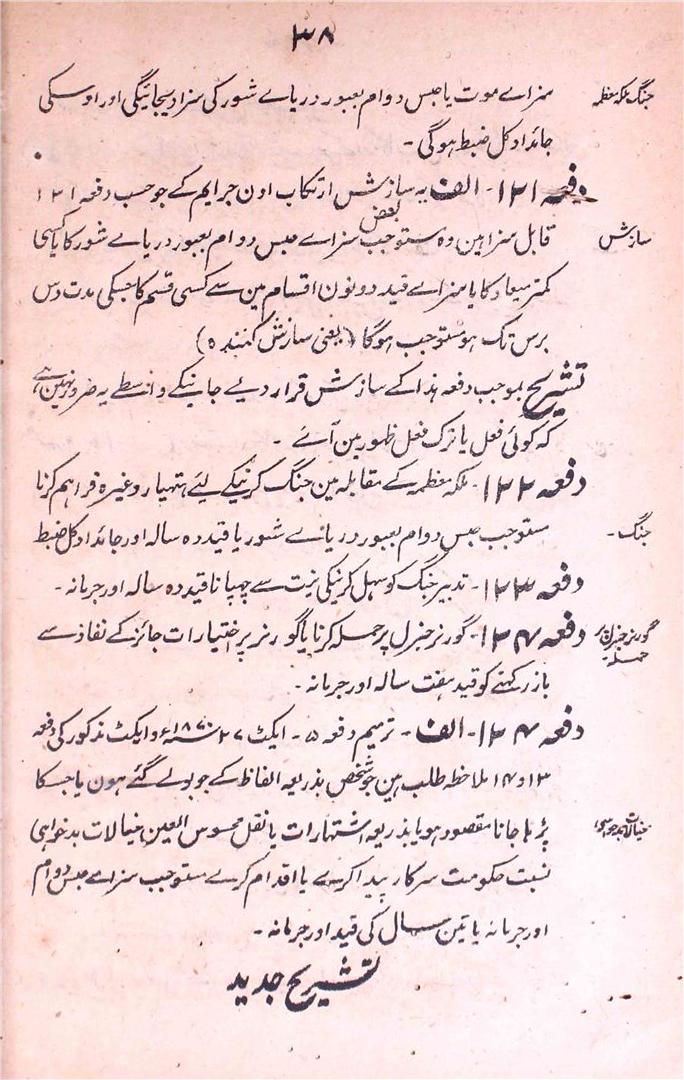 ۳۸
جنگ ملکہ معظمہ
سزاے موت یا حبس دوام بعبور دریاے شور کی سزا دیجائیگی اور اوسکی
جائداد کل ضبط ہوگی۔
دفعہ ۱۲۱۔ الف یہ سازش ارتکاب اون جرایم کے جو حسب دفعہ ۱۲۱
سازش
قابل سزا ہین وہ مستوجب بعض سزاے حبس دوام بعبور دریاے شور کا یا کسی
کمتر میعاد کا یا سزاے قید دونون اقسام مین سے کسی قسم کا جسکی مدت دس
برس تک ہو مستوجب ہوگا (یعنی سازش کنندہ)
تشریح بموجب دفعہ ہذا کے سازش قرار دیے جانیکے واسطے یہ ضرور نہین ہے
کہ کوئی فعل یا ترک فعل ظہور مین آے۔
دفعہ ۱۲۲۔ ملکہ معظمہ کے مقابلہ مین جنگ کرنیکے لیے ہتھیار وغیرہ فراہم کرنا
جنگ۔
مستوجب حبس دوام بعبور دریاے شور یا قید دہ سالہ اور جائداد کل ضبط
دفعہ ۱۲۳۔ تدبیر جنگ کو سہل کرنیکی نیت سے چھپانا قید دہ سالہ اور جرمانہ۔
گورنر جنرل پر حملہ۔
دفعہ ۱۲۴۔ گورنر جنرل پر حملہ کرنا یا گورنر پر اختیارات جائز کے نفاذ سے
باز رکھنے کو قید ہفت سالہ اور جرمانہ۔
دفعہ ۱۲۴۔ الف۔ ترمیم دفعہ ۵۔ ایکٹ ۲۷ سنہ ۱۸۷۰ء و ایکٹ مذکور کی دفعہ
۱۳ و ۱۴ ملاحظہ طلب ہین جو شخص بذریعہ الفاظ کے جو بولے گئے ہون یا جسکا
خیالات بدخواہی
پڑہا جانا مقصود ہو یا بذریعہ اشتہارات یا نقل محسوس العین خیالات بدخواہی
نسبت حکومت سرکار پیدا کرے یا اقدام کرے مستوجب سزاے حبس دوام
اور جرمانہ یا تین سال کی قید اور جرمانہ۔
تشریح جدید